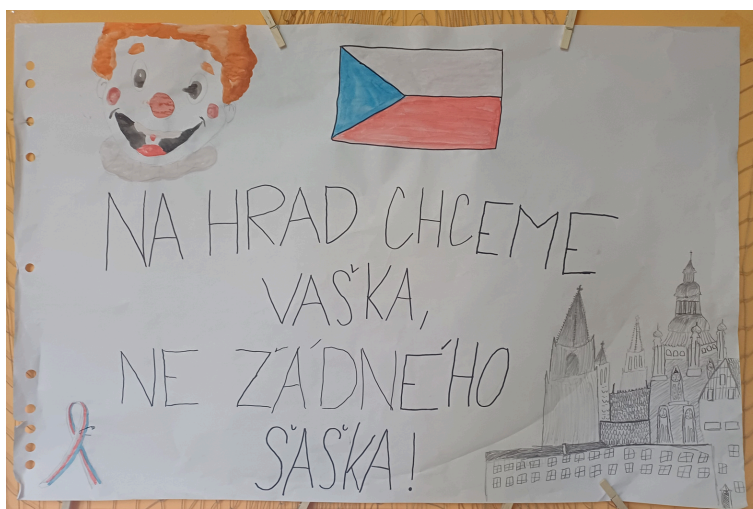 NA HRAD CHCEME
VAŠKA,
NE ŽÁDNÉHO
ŠAŠKA!